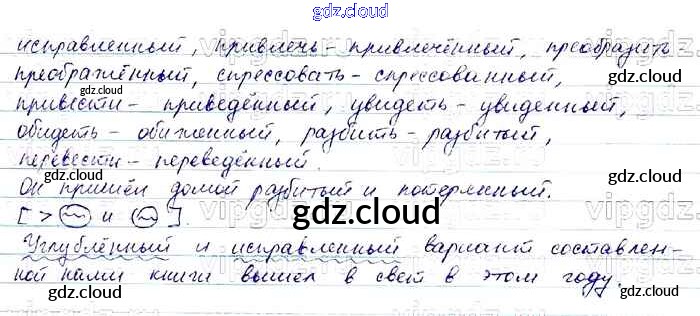 gdz.cloud
исправленный, привлечь – привлечённый, преобразить
преображённый, спрессовать – спрессованный,
привести – приведённый, увидеть – увиденный,
обидеть – обиженный, разбить – разбитый,
перевести – переведённый.
Он пришёл домой разбитый и потерянный.
[ > и ].
Углублённый и исправленный вариант составлен-
ной нами книги вышел в свет в этом году.
gdz.cloud
gdz.cloud
gdz.cloud
gdz.cloud
gdz.cloud
gdz.cloud
gdz.cloud
gdz.cloud